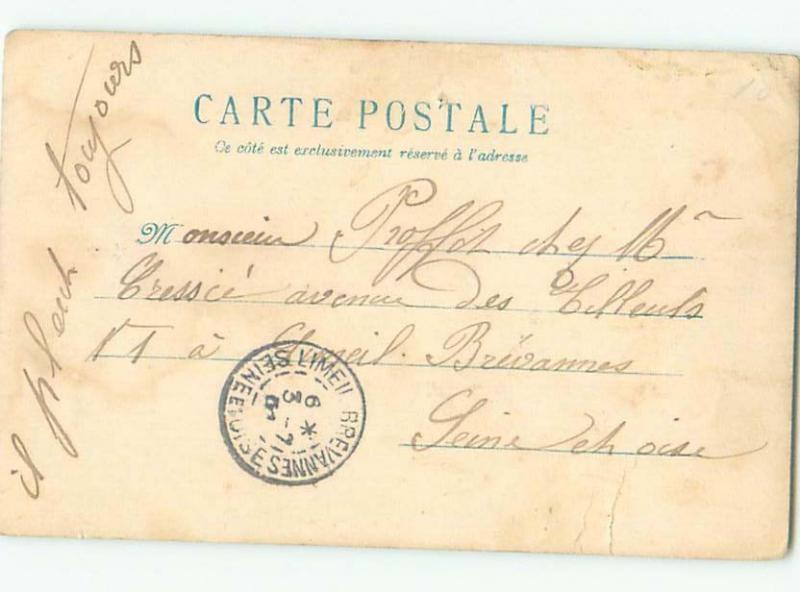 CARTE POSTALE
Ce côté est exclusivement réservé à l'adresse
Monsieur Proffit chez Mr
Cressié avenue des Tilleuls
à Limeil-Brévannes
Seine et oise
il pleut toujours
LIMEIL BREVANNES SEINE ET OISE
6 *
3 - 7